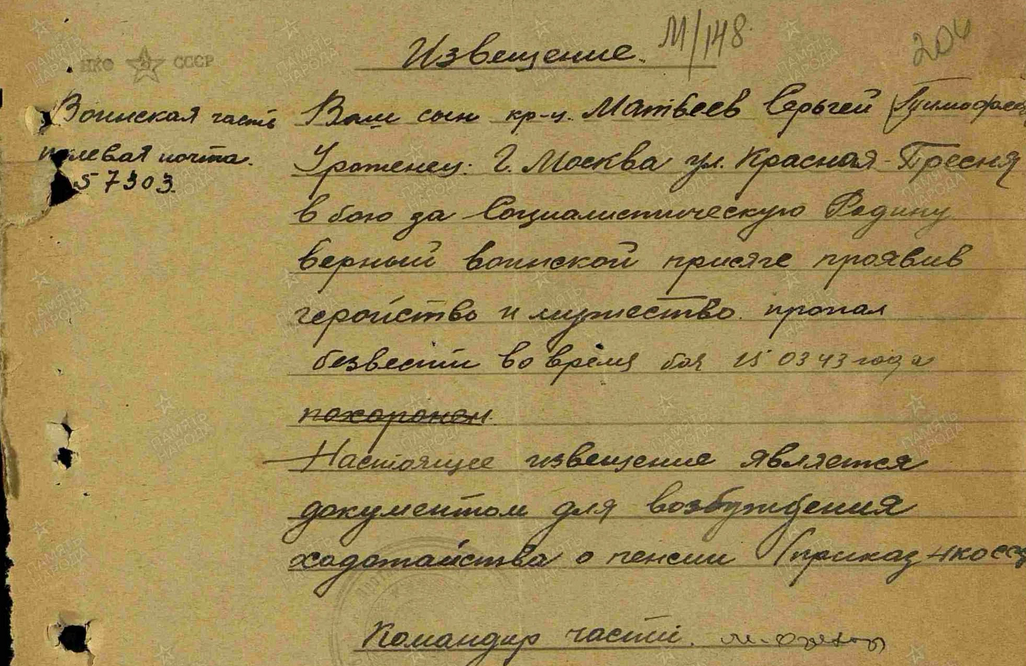 Извещение. М/148
206
НКО СССР
Воинская часть
полевая почта.
57303.
Ваш сын кр-ц. Матвеев Сергей Тимофеев
Уроженец: г. Москва ул. Красная-Пресня
в бою за Социалистическую Родину
верный воинской присяге проявив
геройство и мужество. пропал
безвести во время боя 15 03 43 года
похоронен.
Настоящее извещение является
документом для возбуждения
ходотайства о пенсии (приказ НКО СС
Командир части.
ПАМЯТЬ НАРОДА